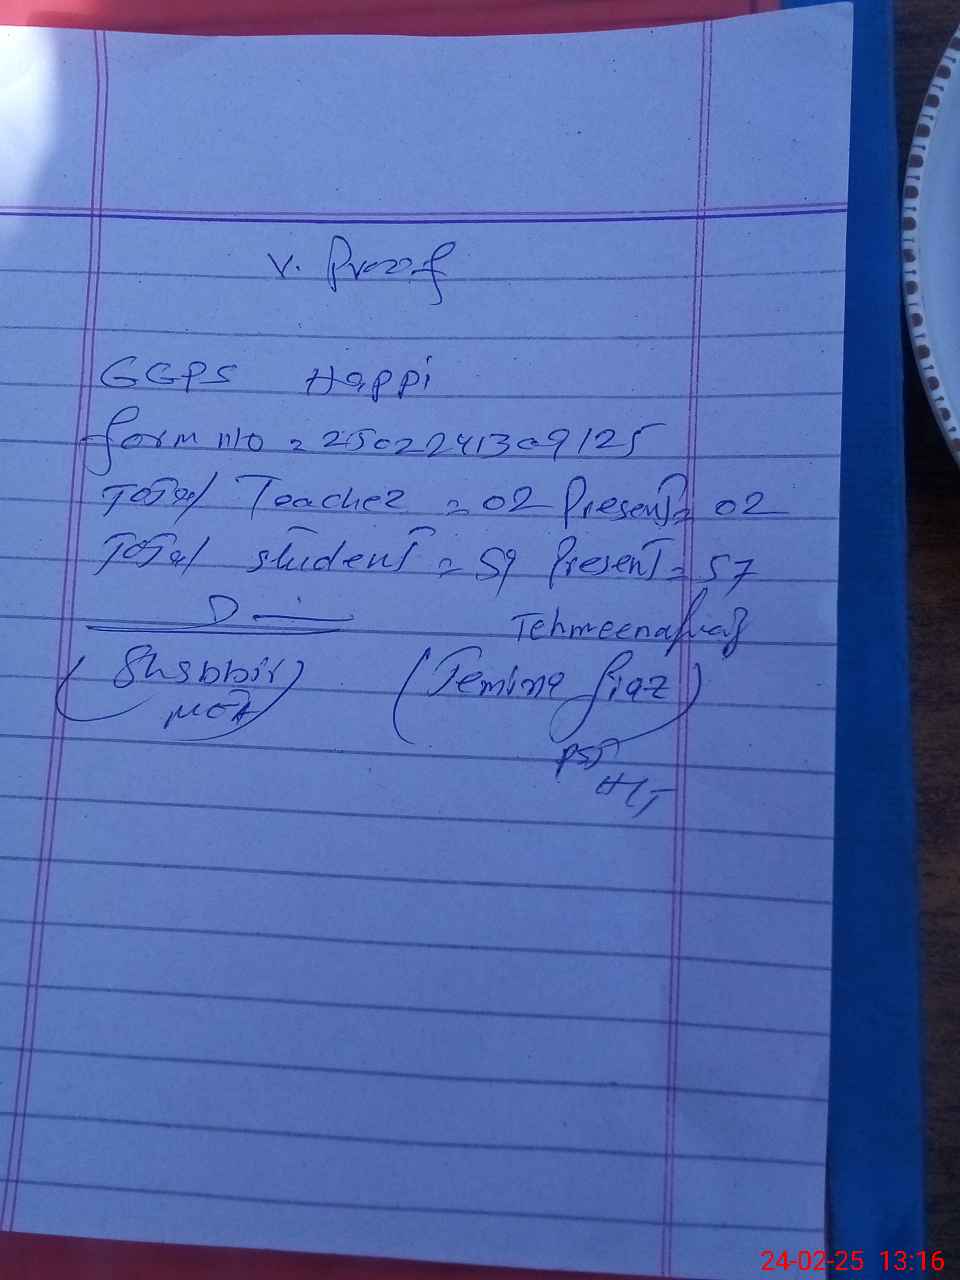 V. Proof
GGPS Happi
form no = 2502241309125
Total Teacher = 02 Present = 02
Total student = 59 Present = 57
Tehmeena
(Shabbir) (Temina fiaz)
MEA
PST
24-02-25 13:16